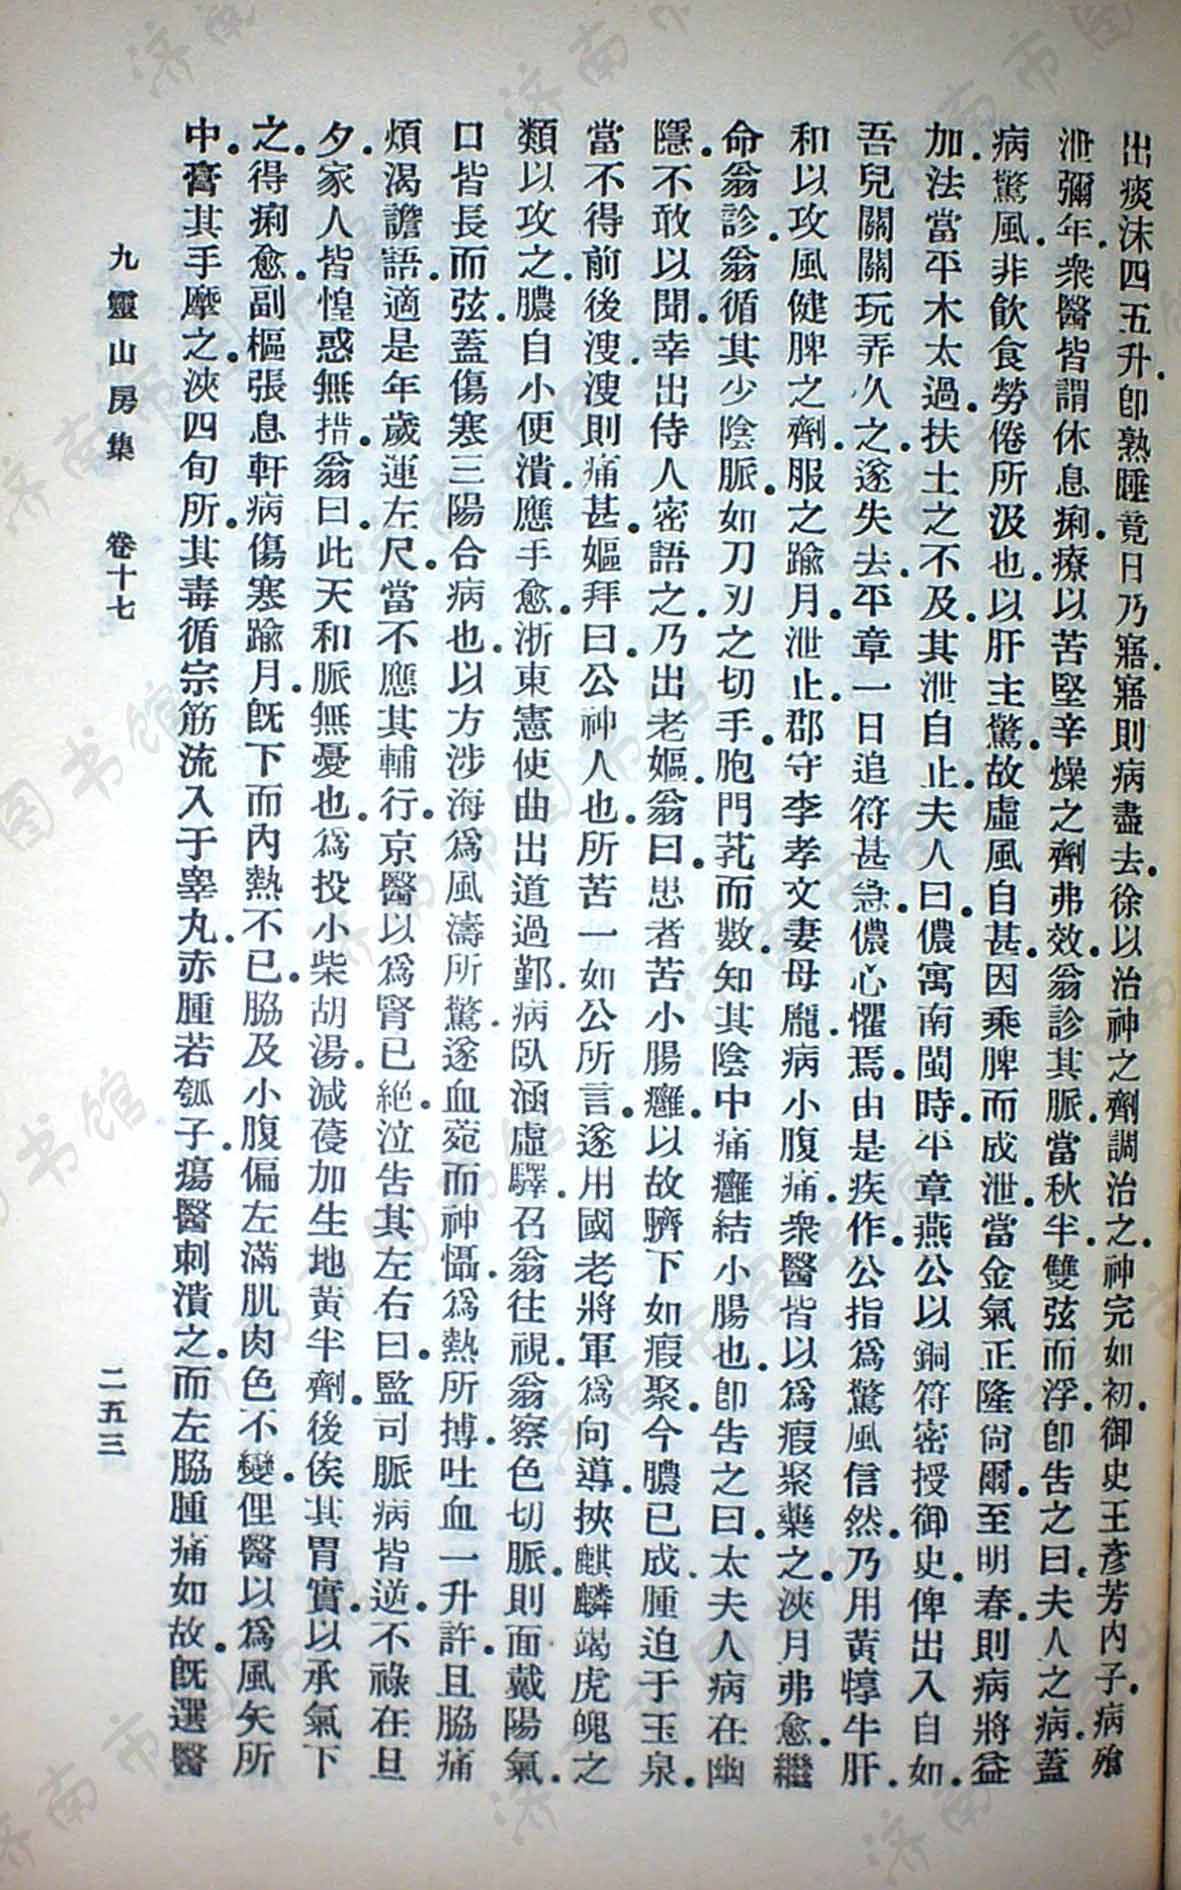 出痰沫四五升.卽熟睡竟日乃寤.寤則病盡去.徐以治神之劑調治之.神完如初.御史王彥芳內子.病飱
泄彌年.衆醫皆謂休息痢.療以苦堅辛燥之劑弗效.翁診其脈.當秋半.雙弦而浮.卽告之曰.夫人之病.蓋
病驚風.非飲食勞倦所汲也.以肝主驚.故虛風自甚.因乘脾而成泄.當金氣正隆尙爾.至明春.則病將益
加.法當平木太過.扶土之不及.其泄自止.夫人曰.儂寓南閩時.平章燕公以銅符密授御史.俾出入自如.
吾兒關關玩弄久之.遂失去.平章一日追符甚急.儂心懼焉.由是疾作.公指爲驚風信然.乃用黃犉牛肝.
和以攻風健脾之劑.服之踰月.泄止.郡守李孝文妻母龐.病小腹痛.衆醫皆以爲瘕聚.藥之.浹月弗愈.繼
命翁診.翁循其少陰脈.如刀刃之切手.胞門芤而數.知其陰中痛.癰結小腸也.卽告之曰.太夫人病在幽
隱.不敢以聞.幸出侍人密語之.乃出老嫗.翁曰.思者苦小腸癰.以故臍下如瘕聚.今膿已成.腫迫于玉泉.
當不得前後溲.溲則痛甚.嫗拜曰.公神人也.所苦一如公所言.遂用國老將軍爲向導.挾麒麟竭虎魄之
類以攻之.膿自小便潰.應手愈.浙東憲使曲出道過鄞.病臥涵虛驛.召翁往視.翁察色切脈.則面戴陽氣.
口皆長而弦.蓋傷寒三陽合病也.以方涉海爲風濤所驚.遂血菀而神懾.爲熱所搏.吐血一升許.且脇痛
煩渴譫語.適是年歲運左尺.當不應其輔行.京醫以爲腎已絶.泣告其左右曰.監司脈病皆逆.不祿在旦
夕.家人皆惶惑無措.翁曰.此天和脈.無憂也.爲投小柴胡湯.減葠加生地黃半劑.後俟其胃實.以承氣下
之.得痢愈.副樞張息軒病傷寒踰月.旣下而內熱不已.脇及小腹偏左滿肌肉色不變.俚醫以爲風矢所
中.膏其手摩之.浹四旬所.其毒循宗筋流入于睾丸.赤腫若瓠子.瘍醫刺潰之.而左脇腫痛如故.旣選醫
九靈山房集 卷十七 二五三